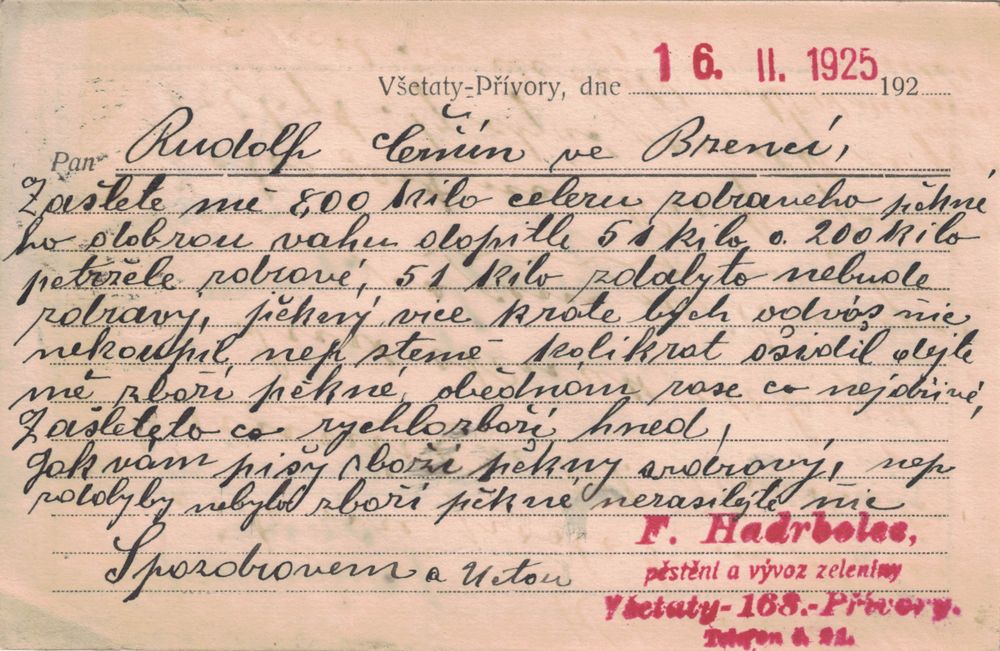 Všetaty-Přívory, dne 16. II. 1925 192
Pan Rudolf ve Brenci,
Zašlete mě 800 kilo celeru zdraveho pěkné
ho dobrou vahu dopitle 51 kilo a 200 kilo
petržele zdrové, 51 kilo zdalyto nebude
zdravý, pěkný vice krate bych odvás nic
nekoupil nep stemě kolikrat ošidil dejte
mě zboží pěkné, obědnám zase co nejdřivé,
Zašleteto co rychlozboží hned,
Jak vám pišy zboži pěkny azdravý, nep
zdalyby nebylo zboží pěkné nezasilejte nic
Spozdrovem a Uctou
F. Hadrbolec,
pěstění a vývoz zeleniny
Všetaty-168.-Přívory.
Telefon č. 21.